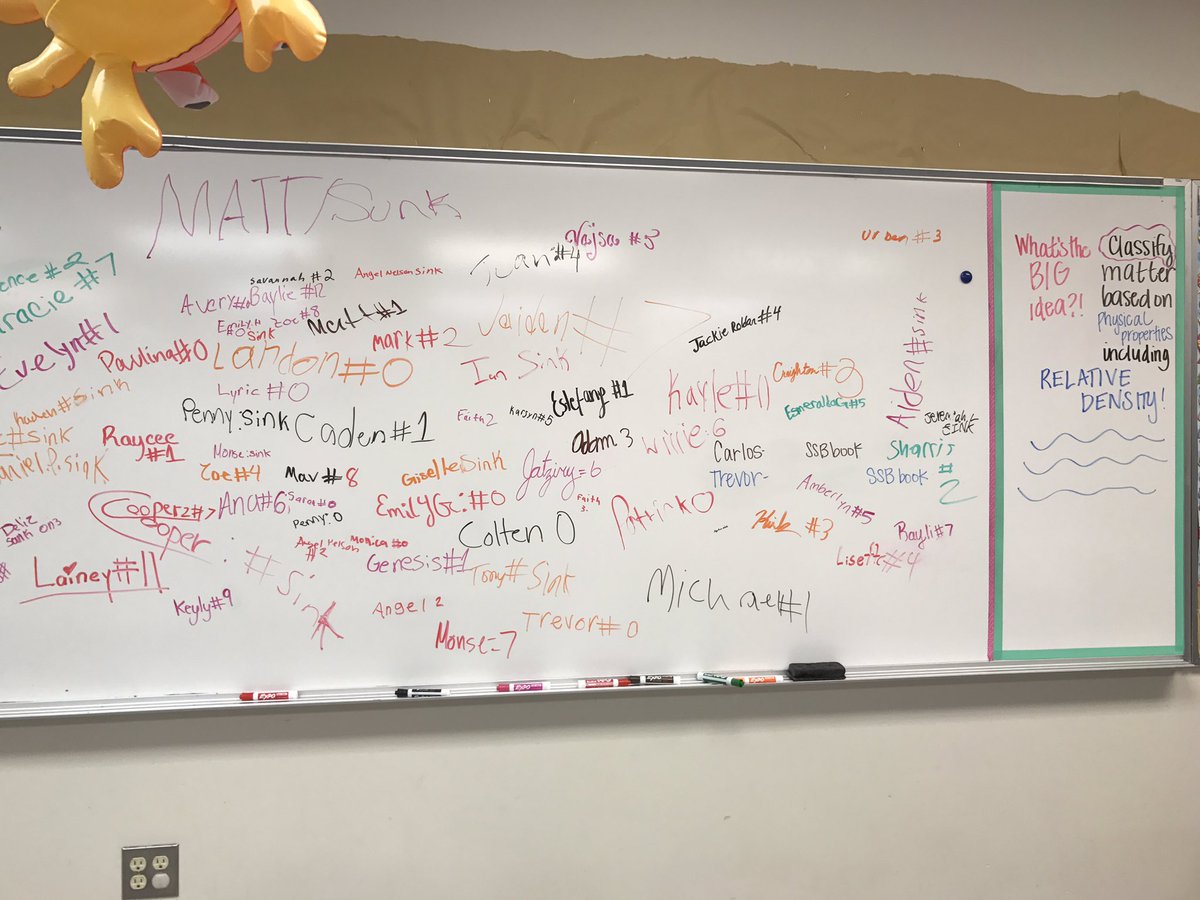 MATT/Sunk
Vajsa #5
Ur ban #3
Juan #4
ence #2
racie #7
Savannah #2
Angel Nelson sink
Avery#0
Baylie #12
Emily.H #0
Zoe #8
sink
Matt #1
mark #2
Jaiden #
Jackie Roldan #4
Evelyn#1
Paulina#0
Landon#0
Ian Sink
Lyric #0
Estefany #1
Kayle#11
Creighton #2
Esmeralda G #5
Aiden#sink
Jeremiah SINK
#sink
Penny:sink
Caden#1
Faith 2
Karsyn#5
Raycee #1
Monse:sink
Adam.3
Willie:6
Carlos-
SSB book
Sharris # 2
niel.P.sink
Zoe#4
Mav #8
Giselle Sink
Jatziry=6
Trevor-
SSB book
Amberlyn#5
Cooper2#7
Cooper: #sink
Ana#6
Sarah#0
Penny:0
EmilyG:#0
Faith 3.
Patrick 0
Colten 0
#3
Rayli#7
Angel Nelson #2
Monica #0
Lainey#11
Genesis#1
Tony# Sink
Lisette #4
Keyly#9
Angel 2
Michael#1
Monse=7
Trevor# 0
EXPO
EXPO
EXPO
What's the
BIG
idea?!
Classify
matter
based on
physical
properties
including
RELATIVE
DENSITY!